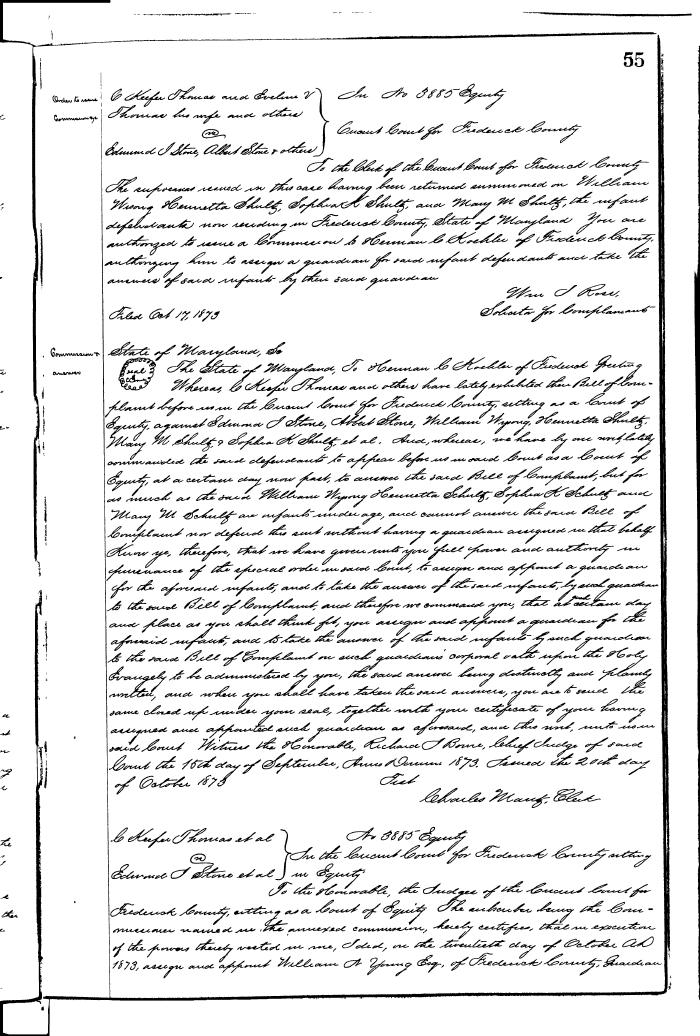 55
Order to issue
Commission
C Keefer Thomas and Evelina V
Thomas his wife and others
vs
Edmund I Stone, Albert Stone & others
In No 3885 Equity
Circuit Court for Frederick County
To the Clerk of the Circuit Court for Frederick County
The supoenas issued in this case having been returned summoned on William
Wysong Henrietta Shultz, Sophia K Shultz, and Mary M Shultz, the infant
defendants now residing in Frederick County, State of Maryland You are
authorized to issue a Commission to Herman C Koehler of Frederick County,
authorizing him to assign a guardian for said infant defendants and take the
answer of said infants by their said guardian
Wm S Rose,
Filed Oct 17, 1873
Solicitor for Complainants
Commission &
answer
State of Maryland, Sc
seal
The State of Maryland, To Herman C Koehler of Frederick Greeting
Whereas, C Keefer Thomas and others have lately exhibited their Bill of Com-
plaint before us in the Circuit Court for Frederick County, sitting as a Court of
Equity, against Edmund I Stone, Albert Stone, William Wysong, Henrietta Shultz,
Mary M Shultz & Sophia K Shultz et al. And, whereas, we have by our writ lately
commanded the said defendants to appear before us in said Court as a Court of
Equity, at a certain day now past, to answer the said Bill of Complaint, but for
as much as the said William Wysong Henrietta Schultz, Sophia K Schultz and
Mary M Schultz are infants under age, and cannot answer the said Bill of
Complaint nor defend this suit without having a guardian assigned in that behalf
Know ye, therefore, that we have given unto you full power and authority in
pursuance of the special order in said Court, to assign and appoint a guardian
for the aforesaid infants, and to take the answer of the said infants, by such guardian
to the said Bill of Complaint, and therefore we command you, that at certain day
and place as you shall think fit, you assign and appoint a guardian for the
aforesaid infants, and to take the answer of the said infants by such guardian
to the said Bill of Complaint on such guardian's corporal oath upon the Holy
Evangely to be administered by you, the said answer being distinctly and plainly
written, and when you shall have taken the said answers, you are to send the
same closed up under your seal, together with your certificate of your having
assigned and appointed such guardian as aforesaid, and this writ, unto us in
said Court Witness the Honorable, Richard J Bowie, Chief Judge of said
Court the 15th day of September, Anno Domini 1873. Issued the 20th day
of October 1873
Test
Charles Mantz, Clerk
C Keefer Thomas et al
vs
Edmund I Stone et al
No 3885 Equity
In the Circuit Court for Frederick County sitting
in Equity
To the Honorable, the Judges of the Circuit Court for
Frederick County, sitting as a Court of Equity The subscriber being the Com-
missioner named in the annexed commission, hereby certifies, that in execution
of the powers thereby vested in me, I did, on the twentieth day of October AD
1873, assign and appoint William N Young Esq, of Frederick County, Guardian